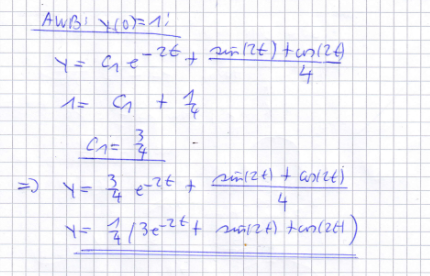 AWB: y(0)=1:
y = C1 e^-2t + (sin(2t)+cos(2t))/4
1 = C1 + 1/4
C1 = 3/4
=> y = 3/4 e^-2t + (sin(2t) + cos(2t))/4
y = 1/4 (3e^-2t + sin(2t) + cos(2t))